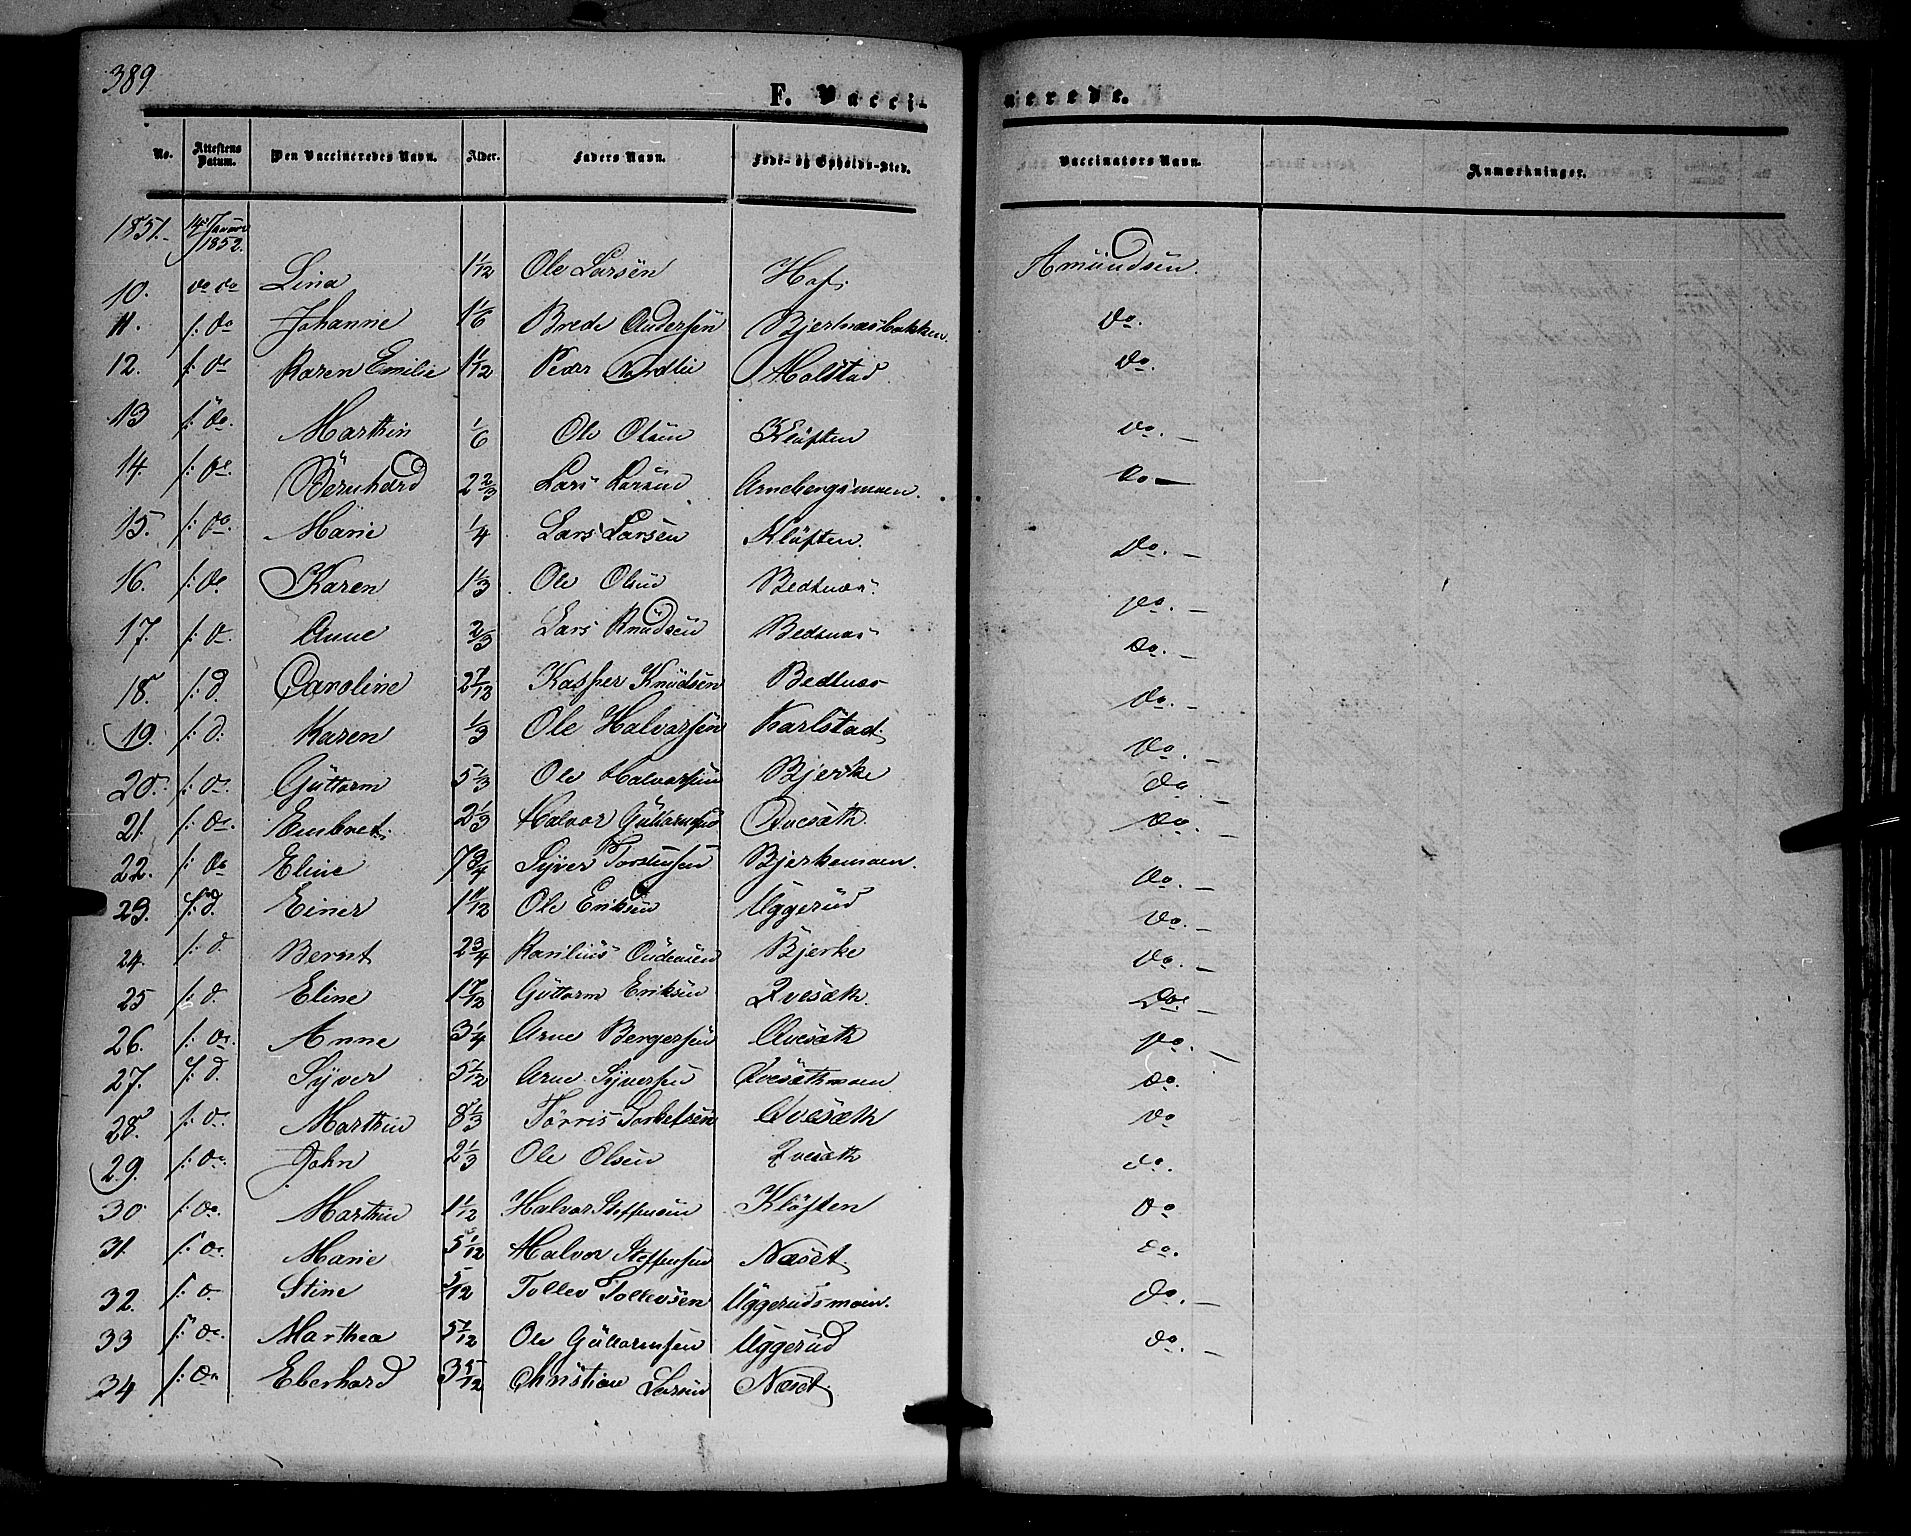 389
F. Vacci- nerede.
No. Attestens Datum. Den Vaccineredes Navn. Alder. Faders Navn. Føde- og Opholds-Sted. Vaccinators Navn. Anmærkninger.
1851. 14/ Januar 1852.
10. do do Lina 1 1/12 Ole Larsen Hof. Amundsen.
11. /: do Johanne 1 1/6 Brede Andersen Bjertnæsbakken. do.
12. /: do Karen Emilie 1 1/12 Peder Molstad do.
13 /: do. Marthin 1/6 Ole Olsen Kløften do. —
14 /: do. Bernhard 2 2/3 Lars Larsen Arnebergsmoen. do —
15. /: do. Marie 1/4 Lars Larsen Kløften. do. —
16. /: do. Karen 1 1/3 Ole Olsen do. —
17. /: d Anne 2/3 Lars Knudsen do. —
18. /: d. Caroline 2 7/12 Kasper Knudsen do. —
19. /: d. Karen 1/3 Ole Halvorsen Karlstad. do. —
20. /: do. Guttorm 5 1/3 Ole Halvorsen Bjerke do. —
21. /: do. Embret. 2 1/3 Halvor Guttormsen Qvesæth. do. —
22. /: do Eline 7 3/4 Syver Torstensen Bjerkemoen. do. —
23. /: d. Einer 1 11/12 Ole Eriksen Uggerud do. —
24. /: d Bernt 2 3/4 Bjerke do. —
25 /: d. Eline 1 7/12 Guttorm Eriksen Qvesæth. do. —
26. /: do. Anne 3 1/4 Arne Bergersen Qvesæth do. —
27. /: d. Syver 5/12 Arne Syversen Qvesæthmoen do.
28. /: d. Marthin 8 1/3 Torris Torkelsen Qvesæth do
29. /: do. John 2 1/3 Ole Olsen Qvesæth do.
30 /: do. Marthin 1 1/12 Halvor Steffensen Kløften do
31. /: do. Marie 5 1/12 Halvor Steffensen Næset. do.
32. /: d. Stine 5/12 Tollev Tollevsen Uggerudsmoen. do. —
33 /: do. Marthea 5 7/12 Ole Guttormsen Uggerud do. —
34 /: do Eberhard 3 5/12 Christian Larsen Næset.